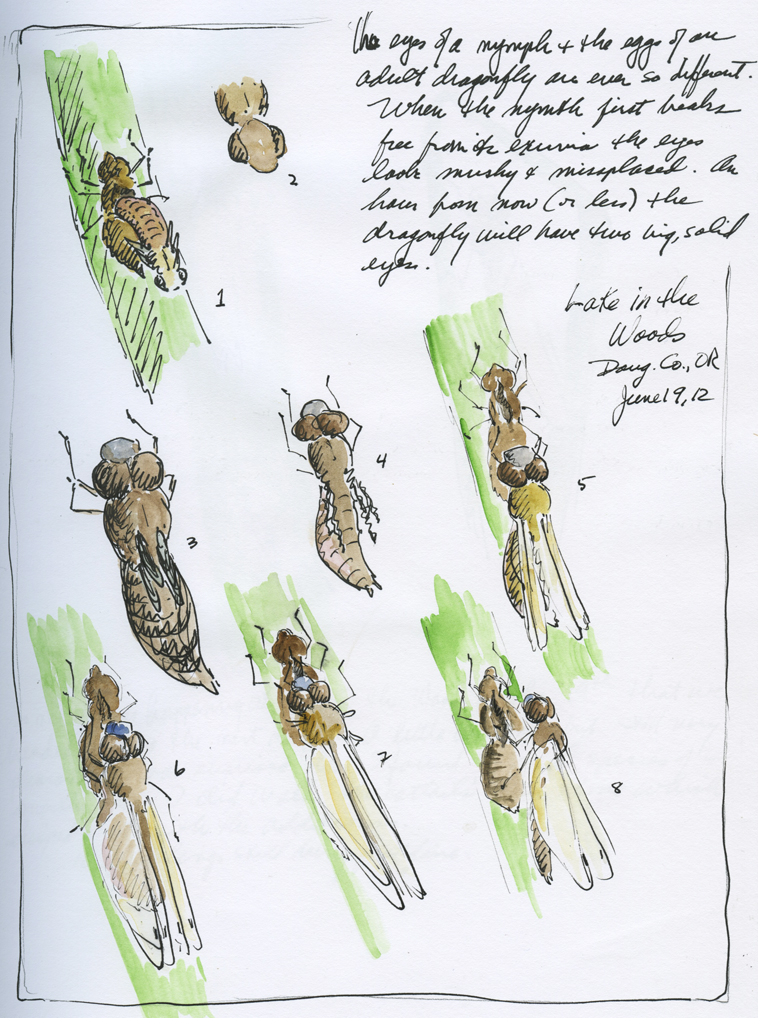 The eyes of a nymph & the eggs of an
adult dragonfly are ever so different.
When the nymth first breaks
free from its exuvia the eyes
look mushy & missplaced. An
hour from now (or less) the
dragonfly will have two big, solid
eyes.
Lake in the
Woods
Doug. Co., OR
June 19, 12
1
2
3
4
5
6
7
8